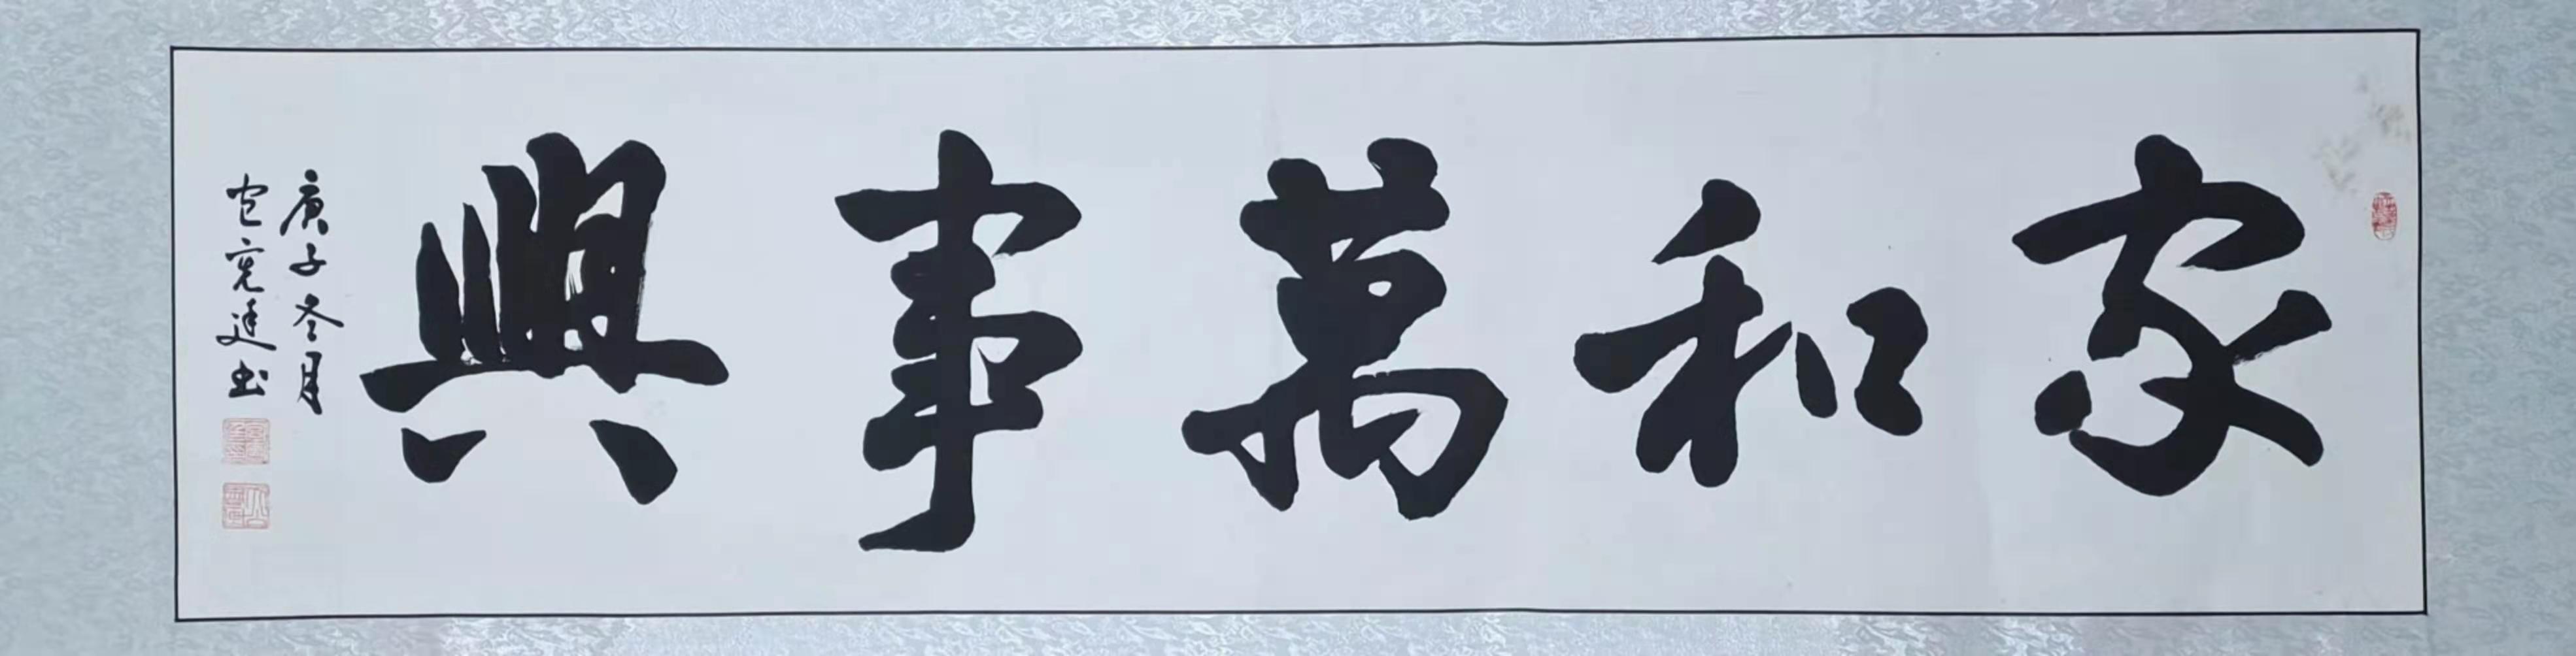 家和萬事興
庚子冬月
書